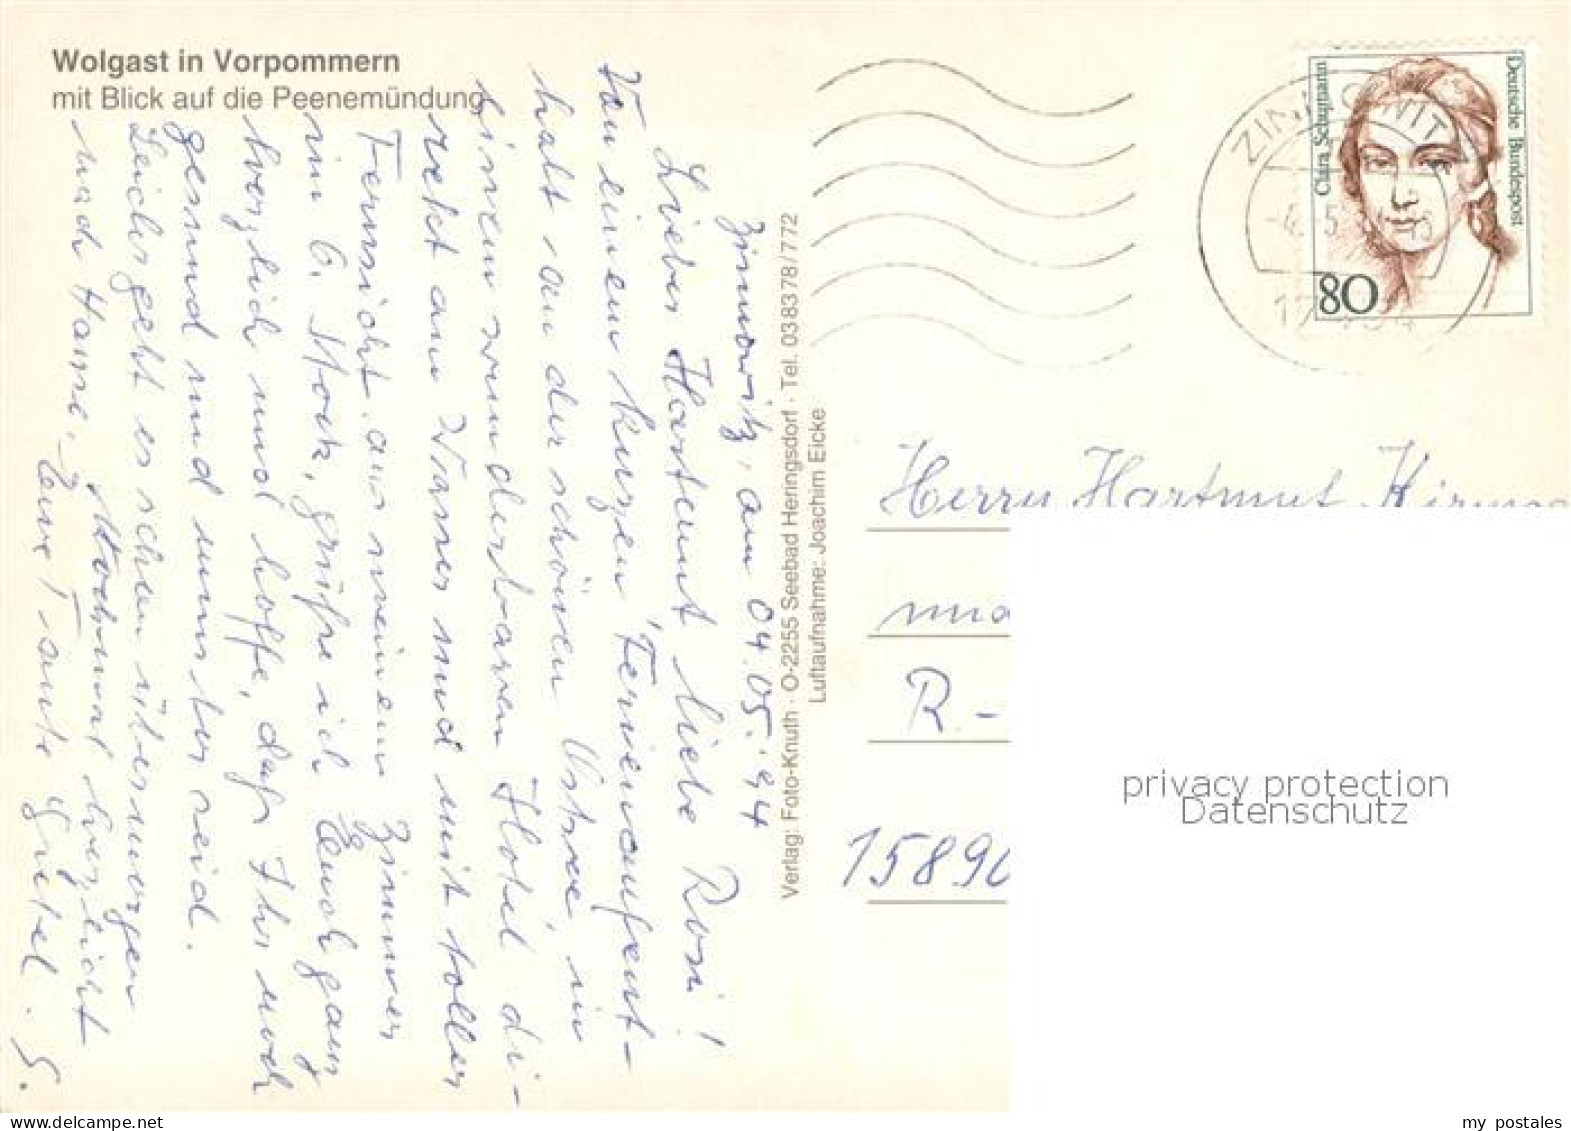 Wolgast in Vorpommern
mit Blick auf die Peenemündung
Zinnowitz, am 04.05.'94
Lieber Hartmut liebe Rosi!
Von einem kurzen Ferienaufent-
halt an der schönen Ostsee, in
einem wunderbaren Hotel di-
rekt am Wasser und mit toller
Fernsicht aus meinem Zimmer
im 6. Stock, grüße ich Euch ganz
herzlich und hoffe, daß Ihr noch
gesund und munter seid.
Leider geht es schon übermorgen
nach Hause. Nochmal herzlichst
Eure Tante Gretel. G.
Verlag: Foto-Knuth · O-2255 Seebad Heringsdorf · Tel. 038378/772
Luftaufnahme: Joachim Eicke
Clara Schumann
Deutsche Bundespost
80
Herrn Hartmut
und
R.-
15890
privacy protection
Datenschutz
my postales